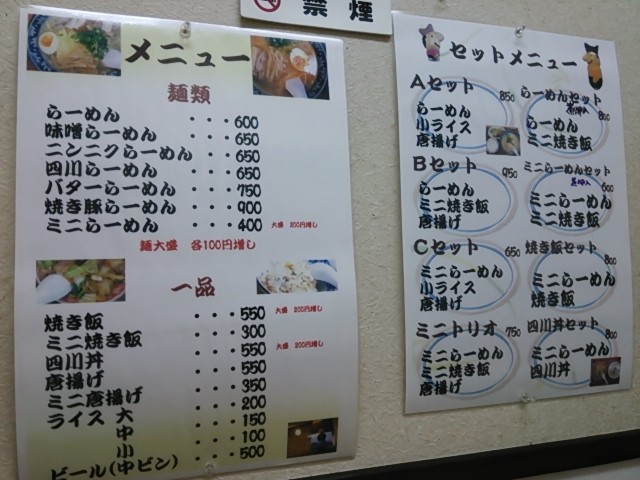 禁煙
メニュー
麺類
らーめん ・・・600
味噌らーめん ・・・650
ニンニクらーめん ・・・650
四川らーめん ・・・650
バターらーめん ・・・750
焼き豚らーめん ・・・900
ミニらーめん ・・・400 大盛 200円増し
麺大盛 各100円増し
一品
焼き飯 ・・・550 大盛 200円増し
ミニ焼き飯 ・・・300
四川丼 ・・・550 大盛 200円増し
唐揚げ ・・・550
ミニ唐揚げ ・・・350
ライス 大 ・・・200
中 ・・・150
小 ・・・100
ビール(中ビン) ・・・500
セットメニュー
Aセット 850
らーめん
小ライス
唐揚げ
らーめんセット 800
らーめん
ミニ焼き飯
Bセット 950
らーめん
ミニ焼き飯
唐揚げ
ミニらーめんセット 600
ミニらーめん
ミニ焼き飯
Cセット 650
ミニらーめん
小ライス
唐揚げ
焼き飯セット 800
ミニらーめん
焼き飯
ミニトリオ 750
ミニらーめん
ミニ焼き飯
唐揚げ
四川丼セット 800
ミニらーめん
四川丼